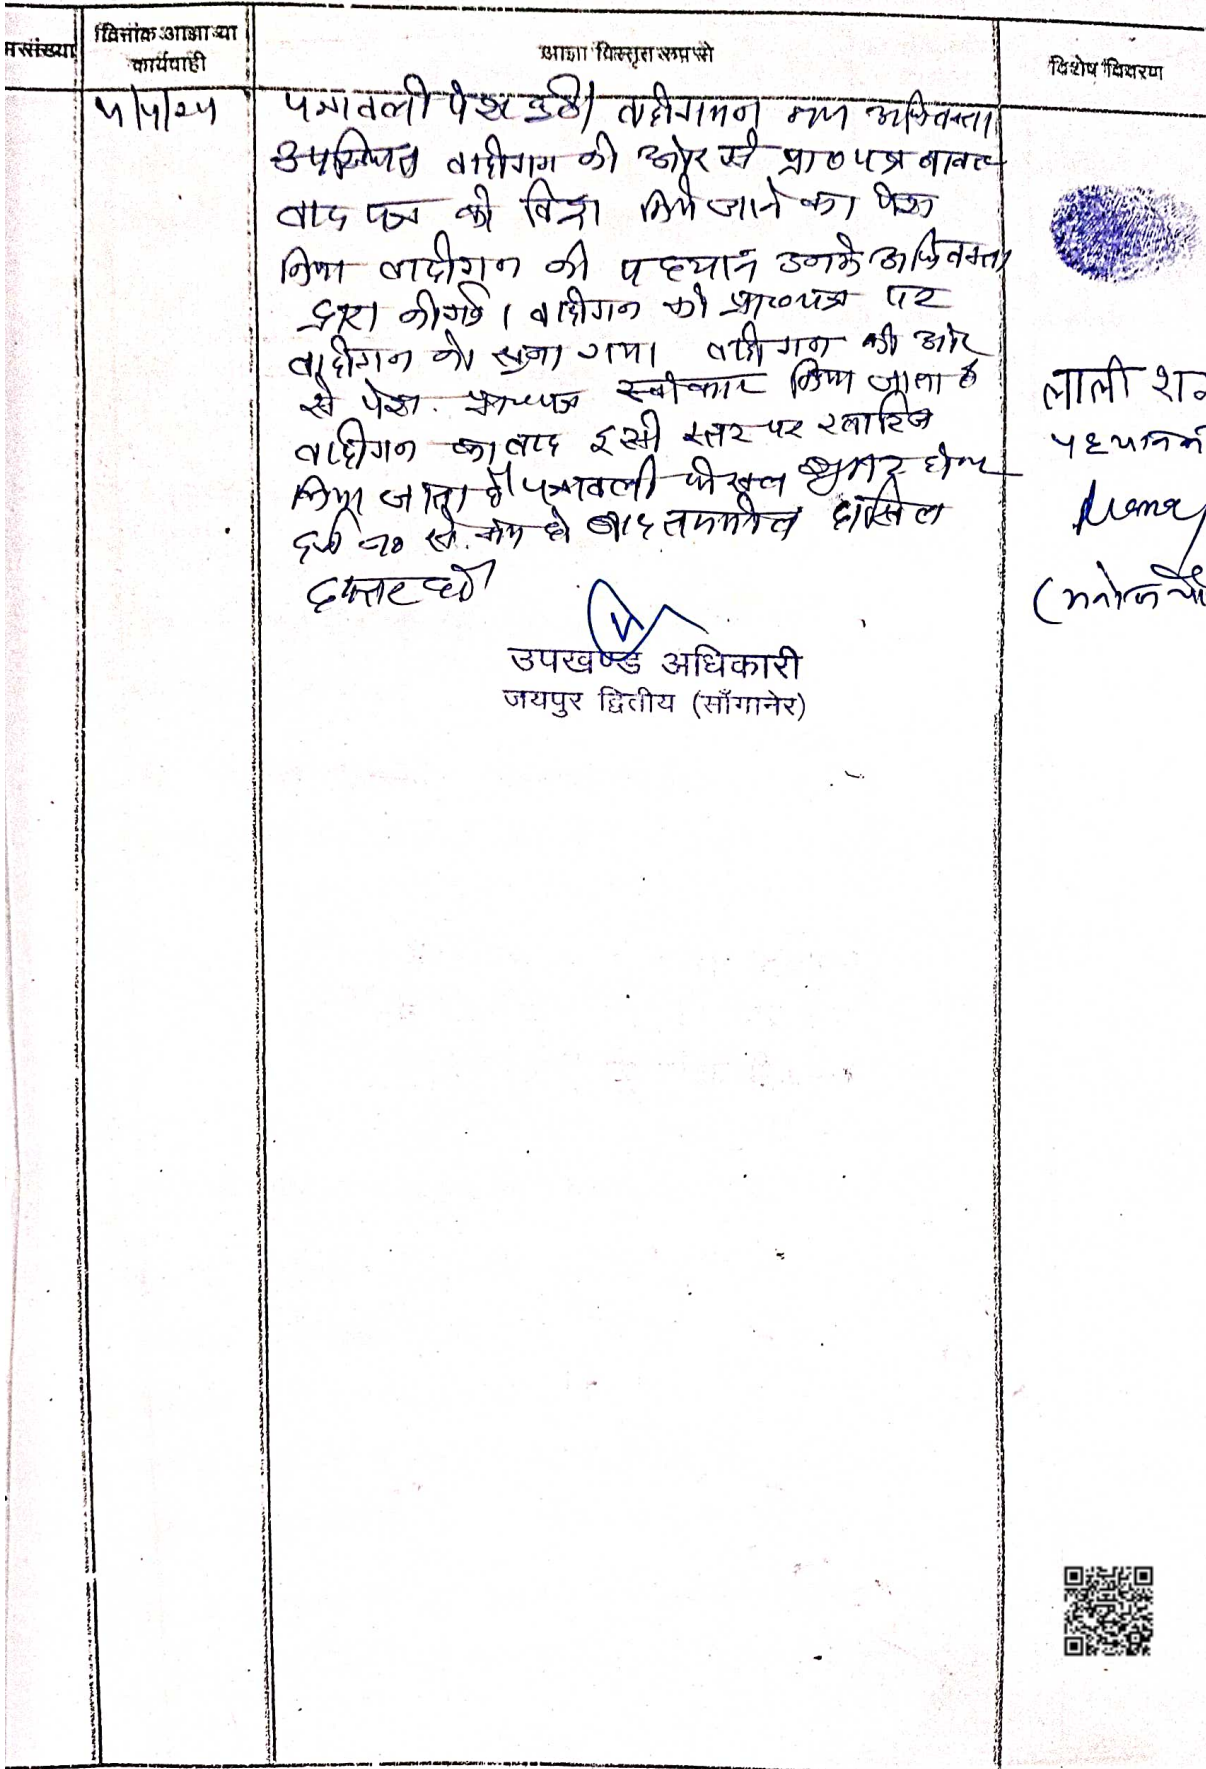 दिनांक आज्ञा या
कार्यवाही
आज्ञा विस्तृत रूप से
विशेष विवरण
पत्रावली पेश हुई। वादीगण मय अधिवक्ता
उपस्थित वादीगण की ओर से प्रा० पत्र बाबत
वाद पत्र को विड्रा किये जाने का पेश
किया वादीगण की पहचान उनके अधिवक्ता
द्वारा की गई। वादीगन को प्रा०पत्र पर
वादीगन को सुना गया। वादीगन की ओर
से पेश प्रा०पत्र स्वीकार किया जाता है
वादीगन का वाद इसी स्तर पर खारिज
किया जाता है। पत्रावली फैसल शुमार होकर
से कम हो बाद तकमील दाखिल
दफ्तर हो।
उपखण्ड अधिकारी
जयपुर द्वितीय (साँगानेर)
लाली